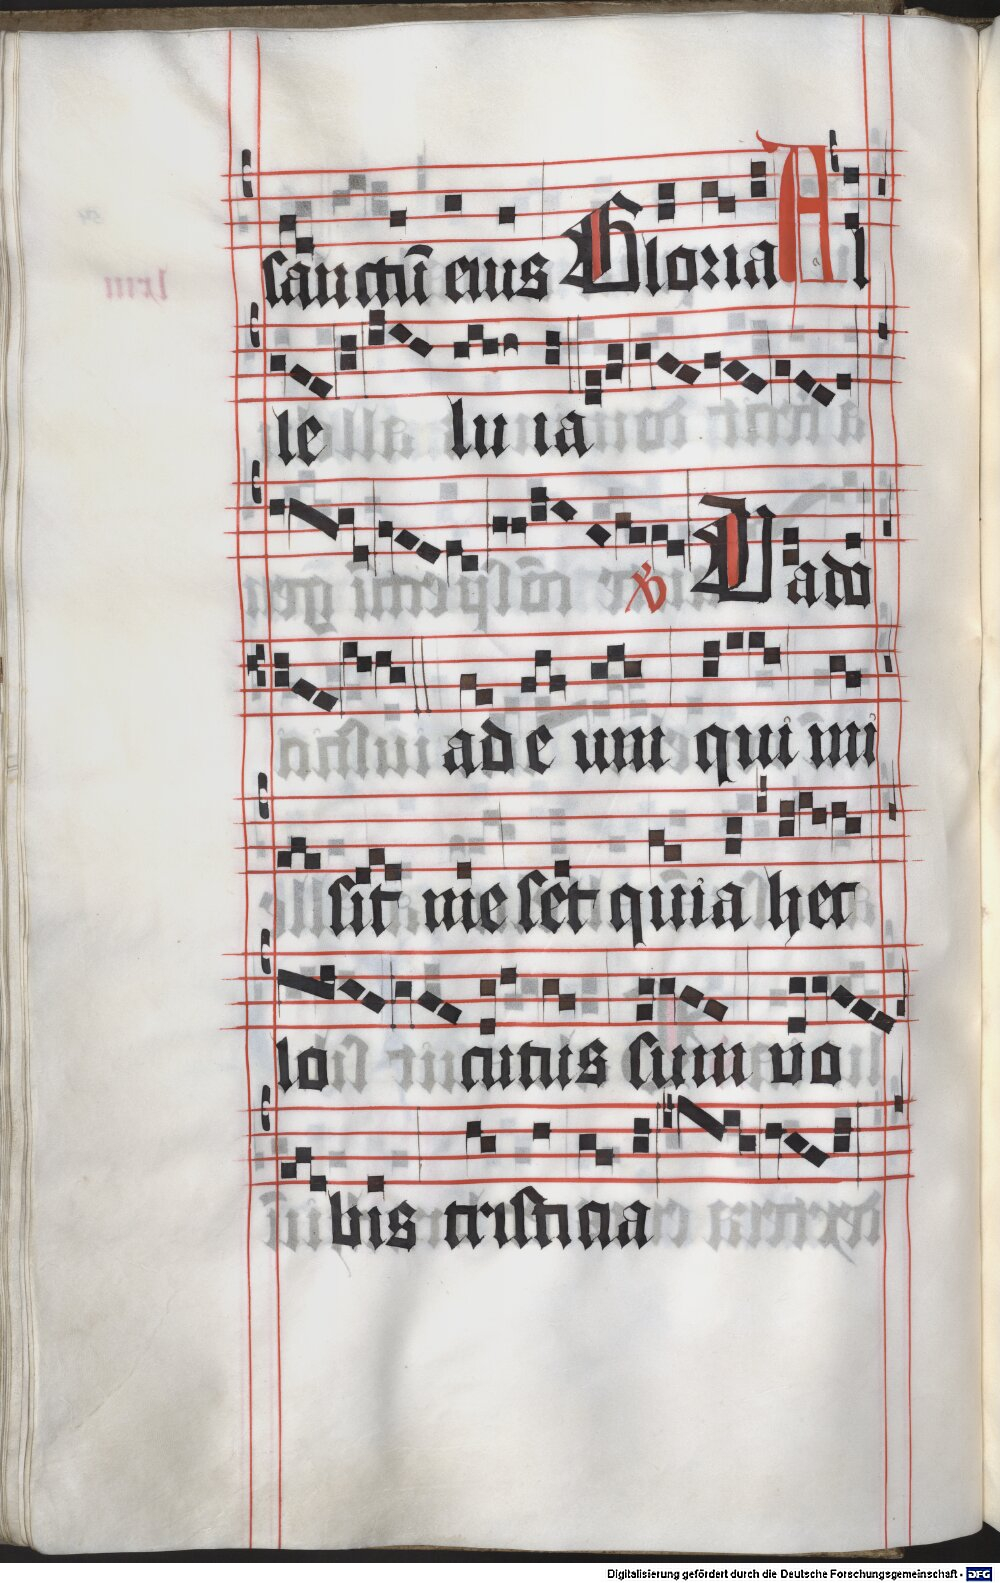 sanctū eius Gloria Al
le lu ia
℣ Vado
ad e um qui mi
sit me set quia hec
lo cutus sum vo
bis tristicia
Digitalisierung gefördert durch die Deutsche Forschungsgemeinschaft - DFG